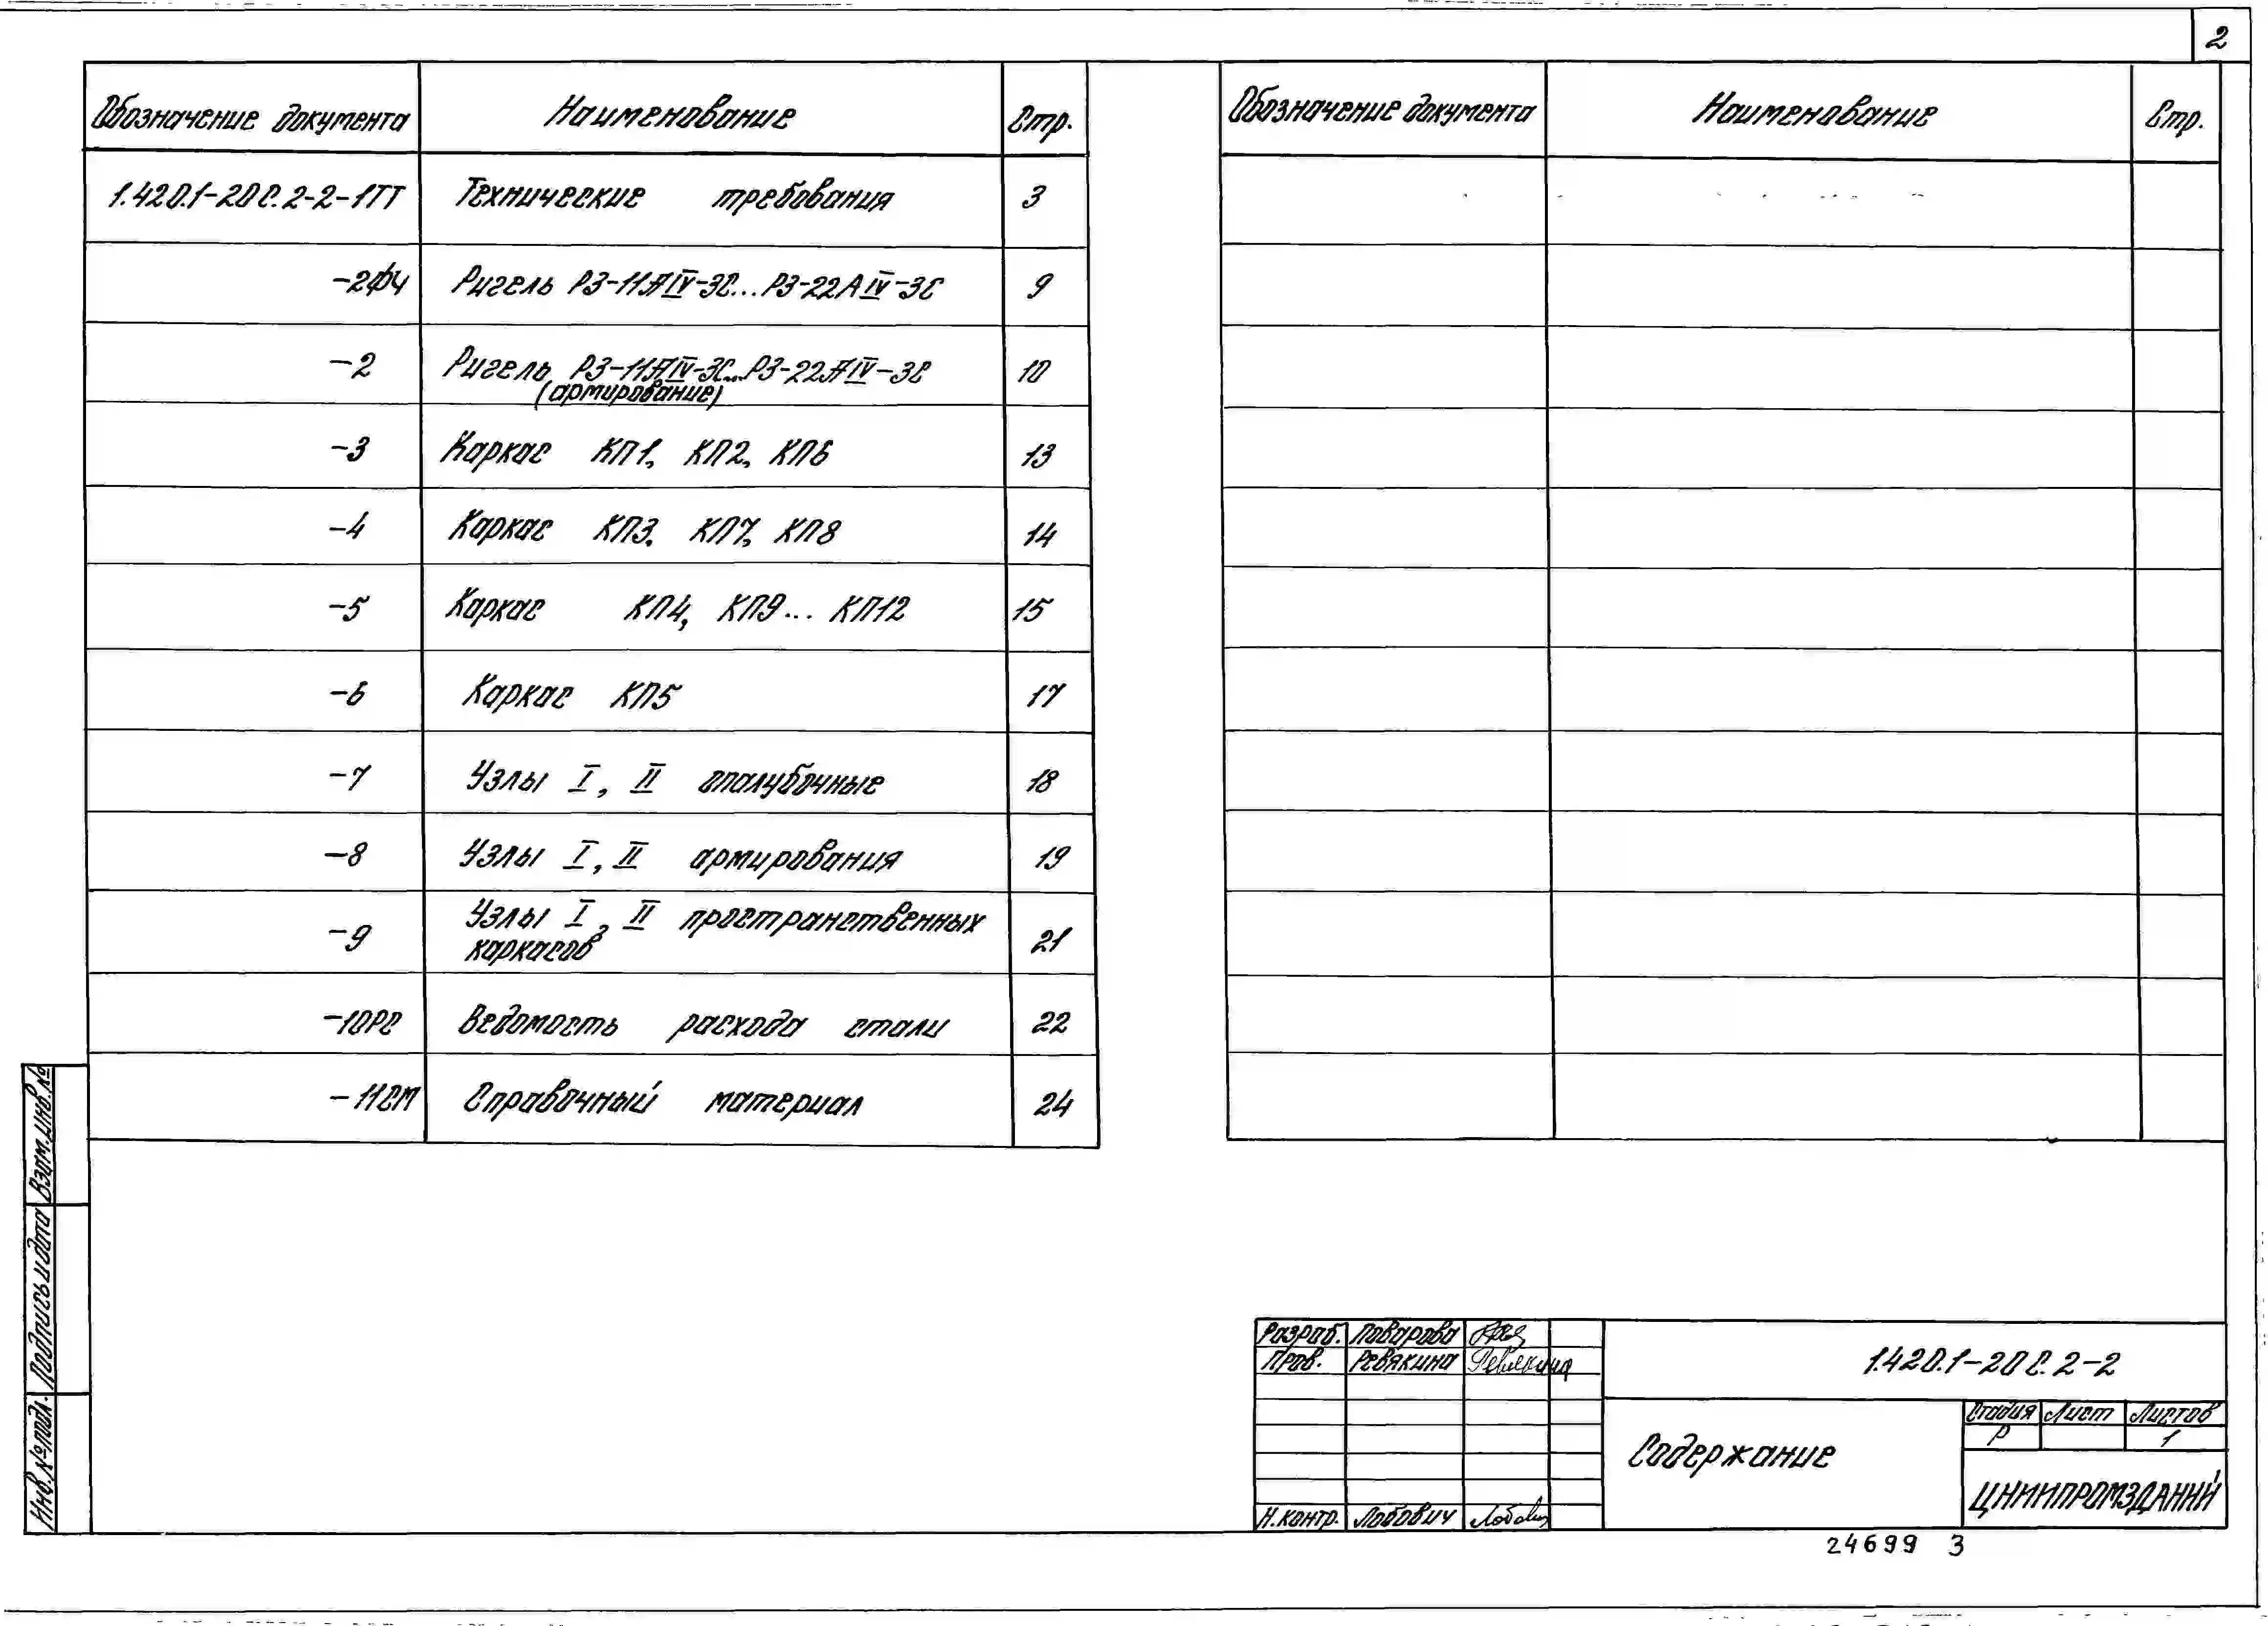 2
Обозначение документа Наименование Стр.
1.420.1-20с.2-2-1ТТ Технические требования 3
-2ФЧ Ригель Р3-11АIV-3С...Р3-22АIV-3С 9
-2 Ригель Р3-11АIV-3С...Р3-22АIV-3С 10
(армирование)
-3 Каркас КП1, КП2, КП6 13
-4 Каркас КП3, КП7, КП8 14
-5 Каркас КП4, КП9... КП12 15
-6 Каркас КП5 17
-7 Узлы I, II опалубочные 18
-8 Узлы I, II армирования 19
-9 Узлы I, II пространственных 21
каркасов
-10РС Ведомость расхода стали 22
-11СМ Справочный материал 24
Обозначение документа Наименование Стр.
Взам.инв.№
Подпись и дата
Инв.№ подл.
Разраб. Поварова
Пров. Ревякина Ревякина
Н.контр. Лобович Лобович
1.420.1-20с.2-2
Содержание
Стадия Лист Листов
Р 1
ЦНИИПРОМЗДАНИЙ
24699 3